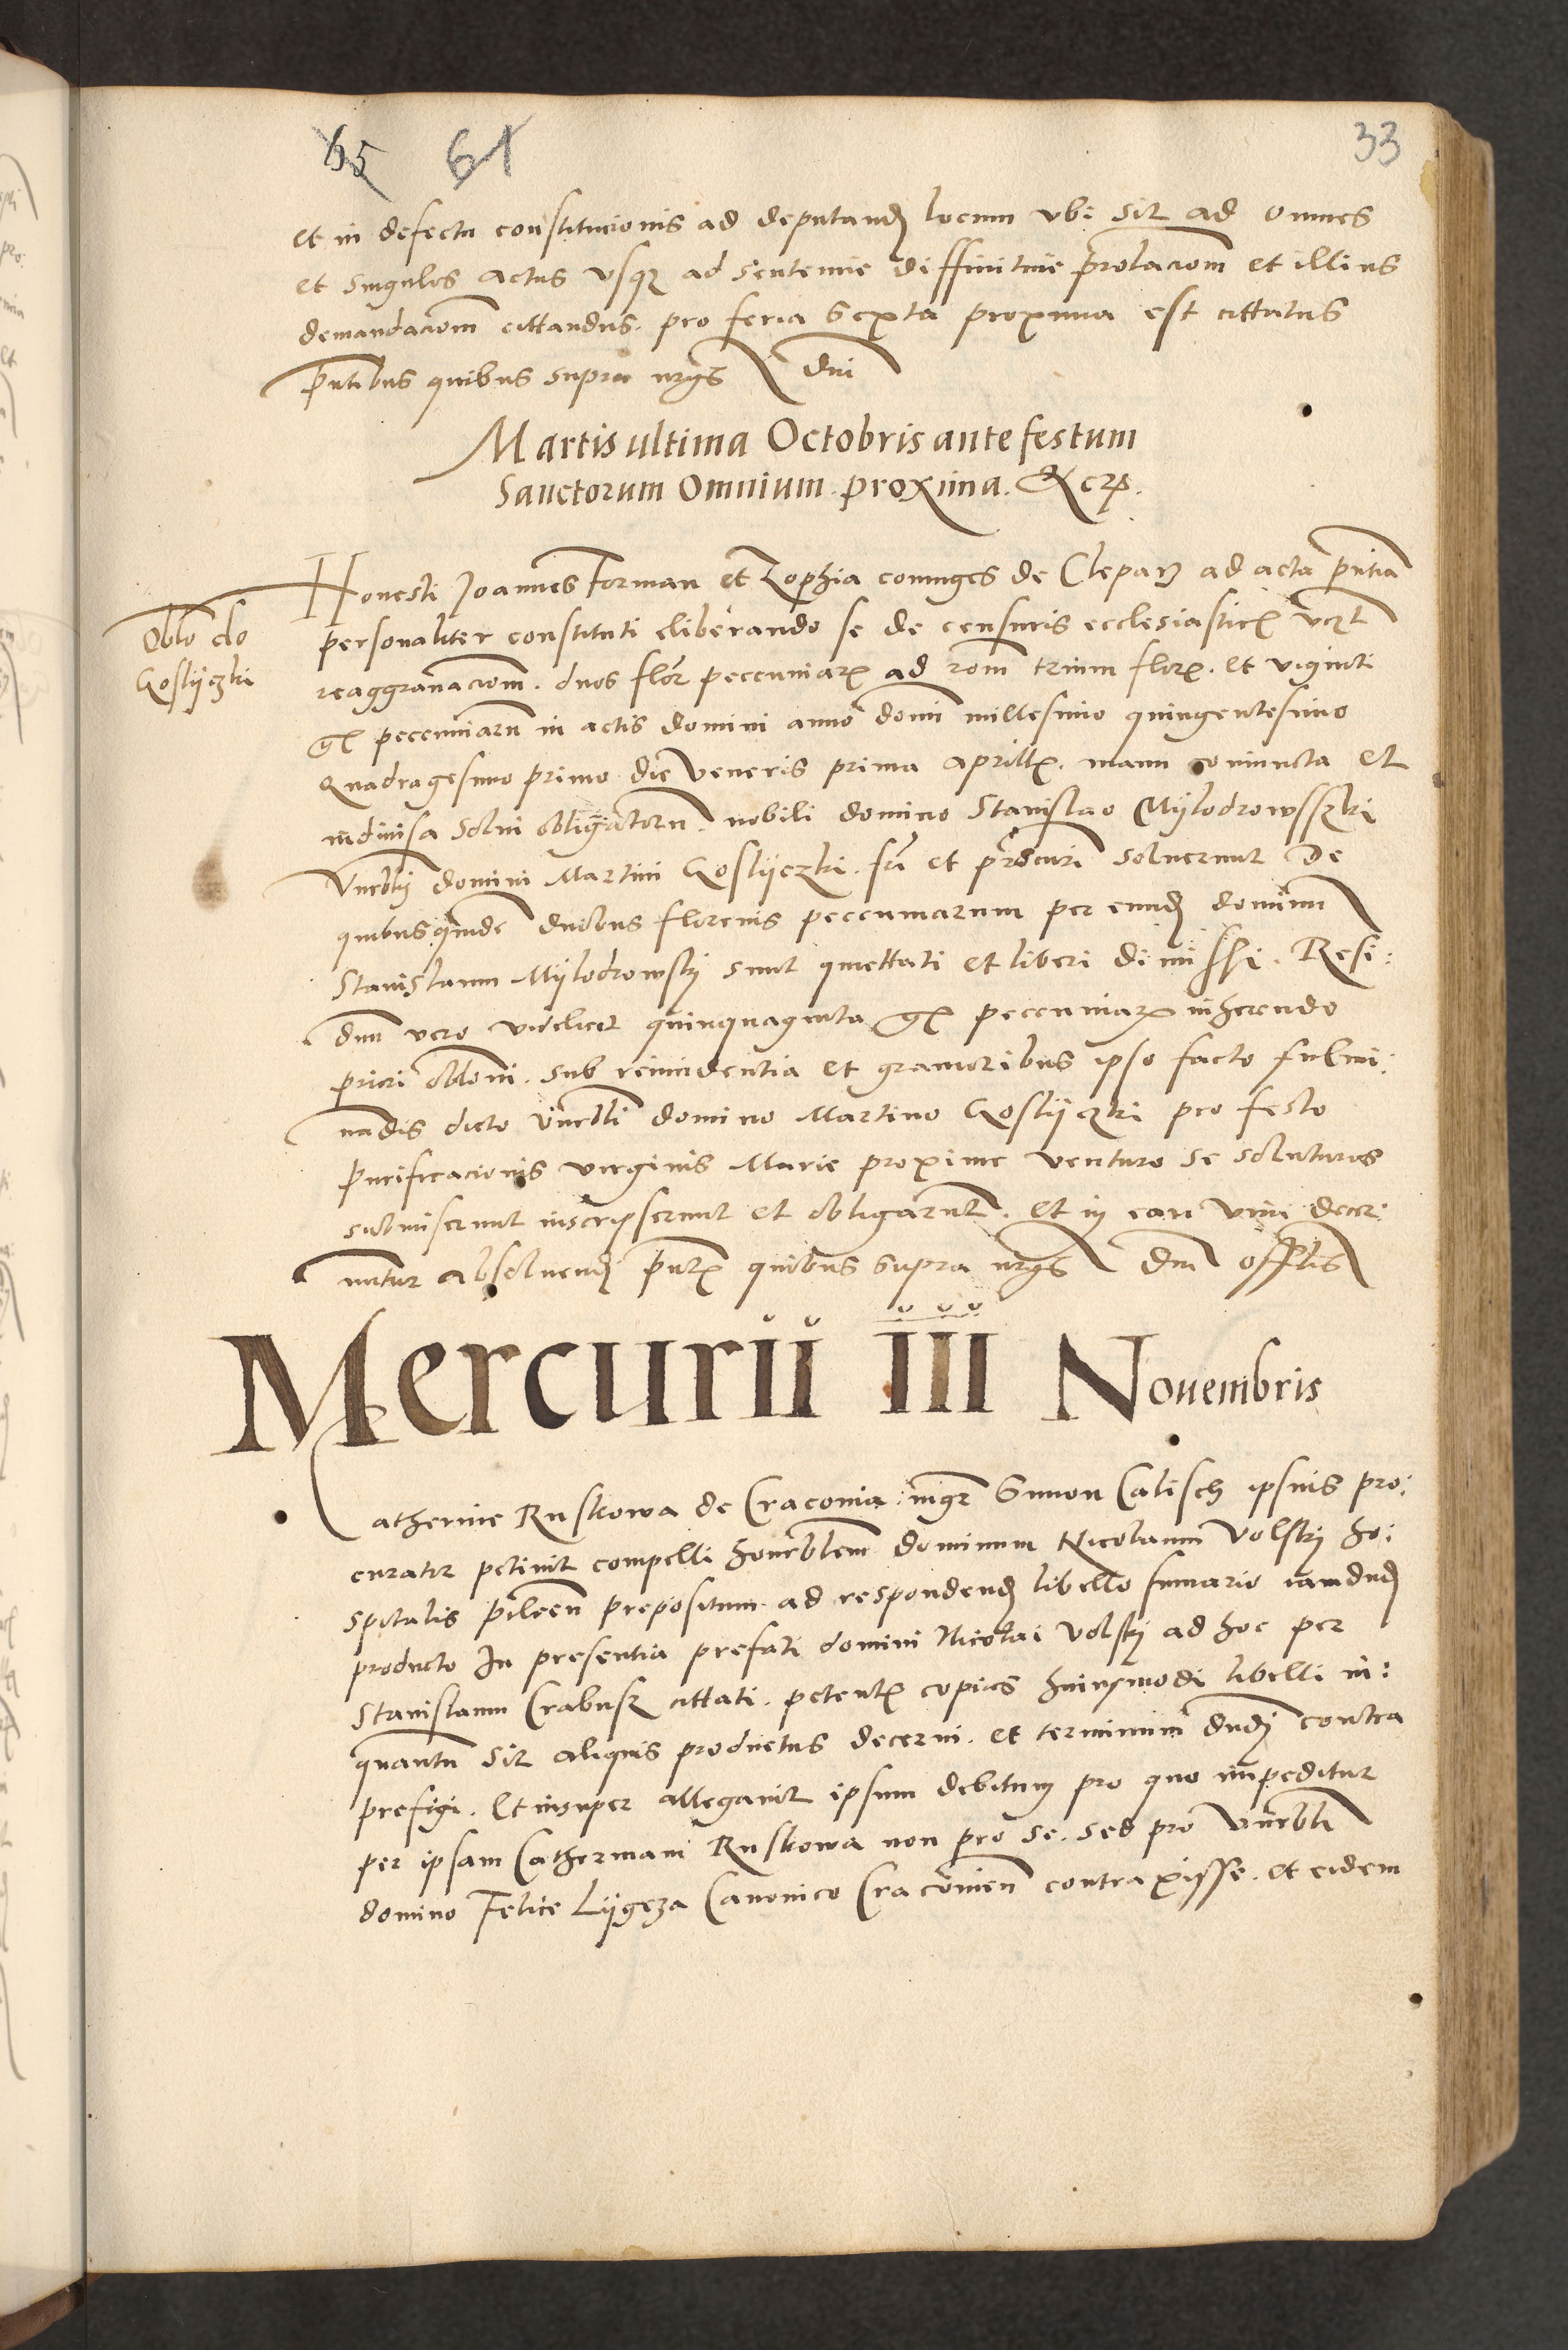 65 61 33
et in defectu constitucionis ad deputand locum vbi sit ad omnes
et singulos actus vsq3 ad sententie diffinitiue prolaciom et illius
demandaciom cittandus. pro feria sexta proxima est cittatus
pntibus quibus supra nrgs dni
Martis ultima Octobris ante festum
Sanctorum Omnium proxima. &
Oblo do
Goslyczki
Honesti Joannes Forman et Zophia coniuges de Clepar3 ad acta pntia
personaliter constituti eliberando se de censuris ecclesiasticx vc3t
reaggrauaciom. duos flor pecuniarx ad rom trium florx. et viginti
gx pecuniaru in actis domini anno domi millesimo quingentesimo
Quadragesimo primo die Veneris prima aprillx. manu coniuncta et
indiuisa solui obligatoru. nobili domino Stanislao Mylodrowsszki
Vnrblis domini Martini Goslyczki. fri et procuri soluerunt De
quibusquide duobus florenis pecuniarum per eund dominu
Stanislaum Mylodrowsky sunt quittati et liberi dimissi. Resi:
duu vero videlicet quinquaginta gx pecuniarx inherendo
priori obloni. sub reincidentia et grauioribus ipso facto fulmi:
nadis dicto Vnrbli domino Martino Goslyczki pro festo
purificacionis virginis Marie proxime venturo se soluturos
submiserunt inscripserunt et obligarunt. et in eam vim decer:
nutur absoluend pntx quibus supra nrgs dni offlis
Mercurii III Nouembris
Catherine Ruskowa de Cracouia mgr Simon Calisch ipsius pro:
curator petiuit compelli honrblem dominum Nicolaum Volsky ho:
spitalis pileen prepositum ad respondend libello sumario iamdud
producto In presentia prefati domini Nicolai Volsky ad hoc per
Stanislaum Crabusz cittati. petentx copias huiusmodi libelli in:
quantu sit aliquis productus decerni. et terminum dudj contra
prefigi. Et insuper allegauit ipsum debitum pro quo impeditur
per ipsam Catherinam Ruskowa non pro se. sed pro Vnrbli
domino Felice Lygeza Canonico Cracouien contraxisse. et eidem